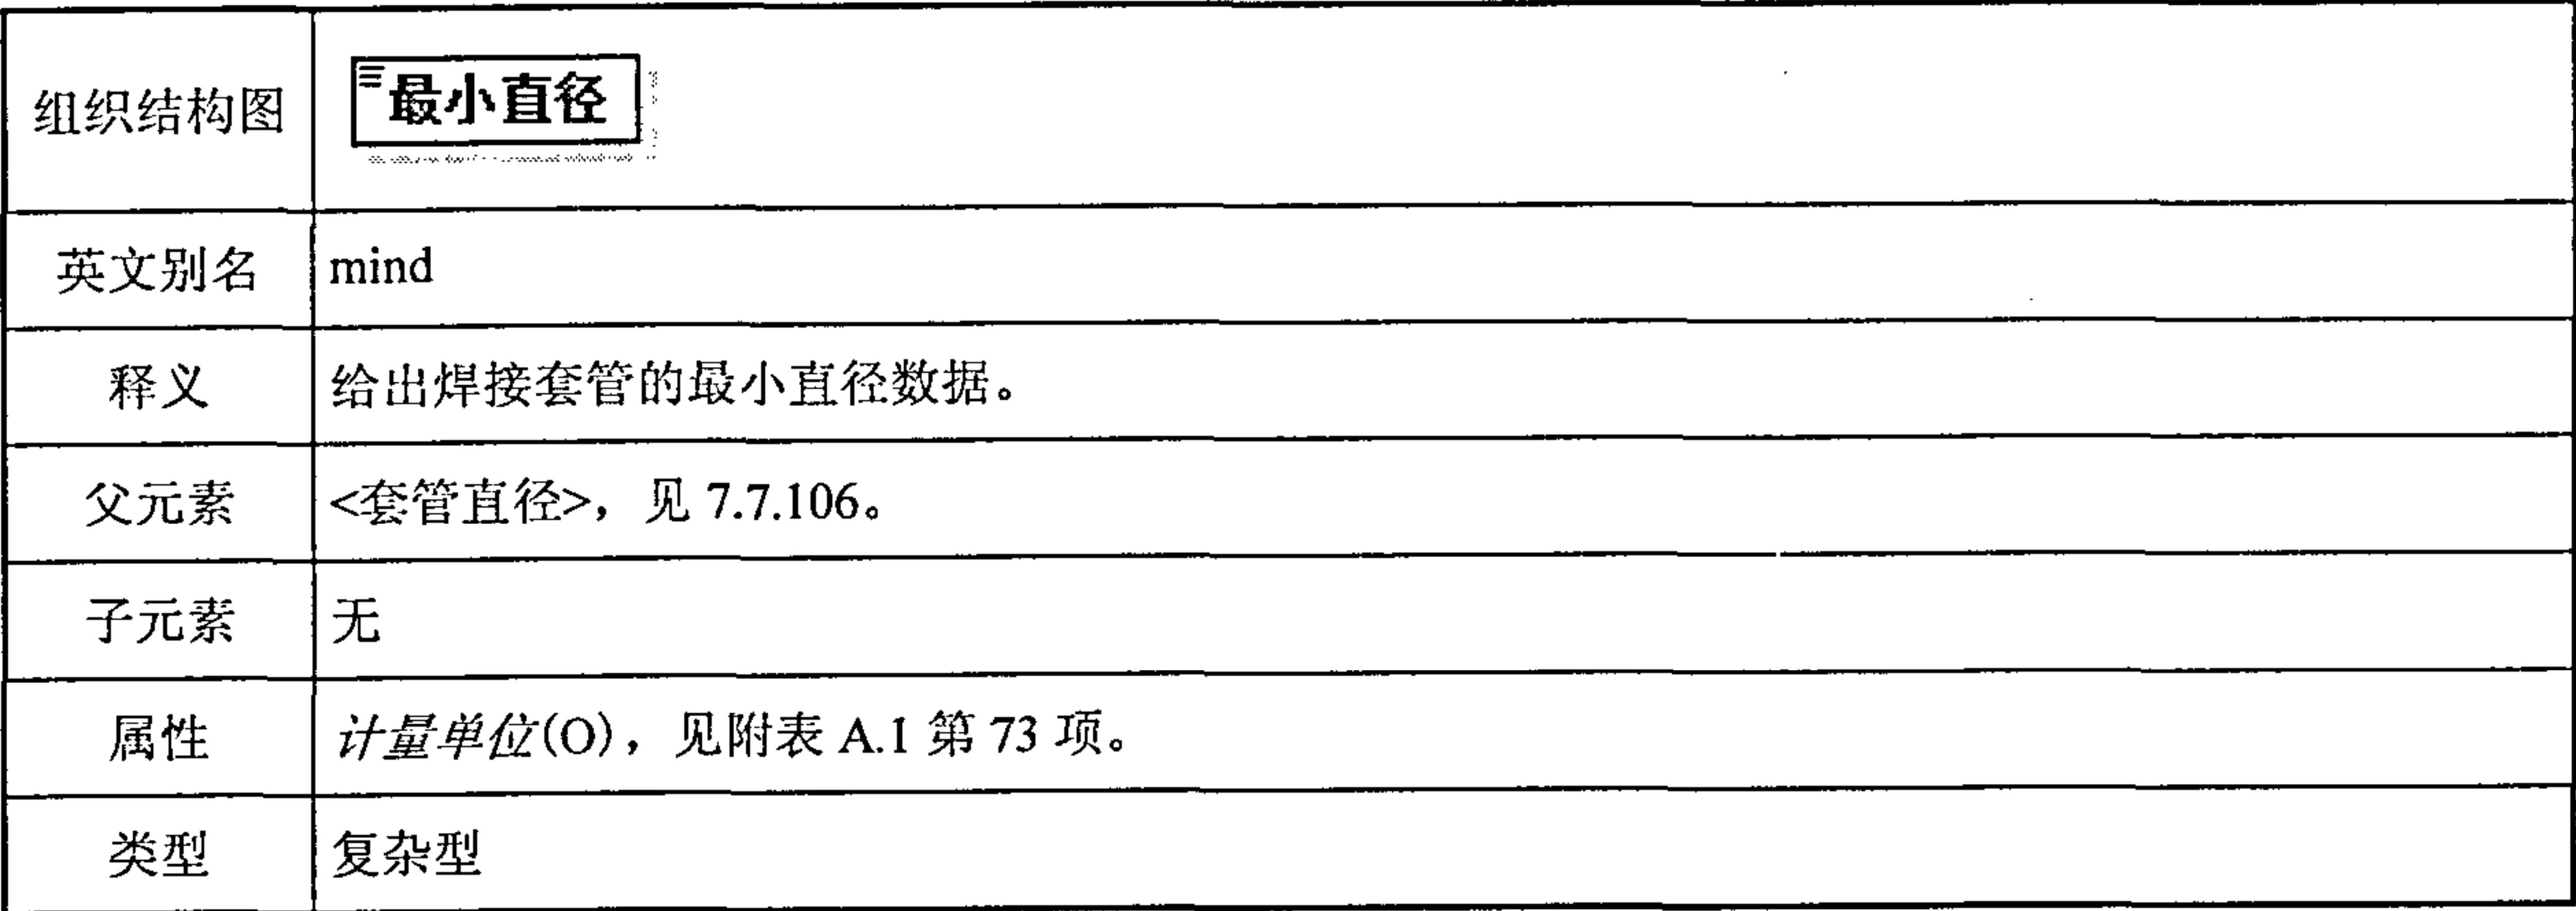 组织结构图 最小直径
英文别名 mind
释义 给出焊接套管的最小直径数据。
父元素 <套管直径>，见 7.7.106。
子元素 无
属性 计量单位(O)，见附表 A.1 第 73 项。
类型 复杂型